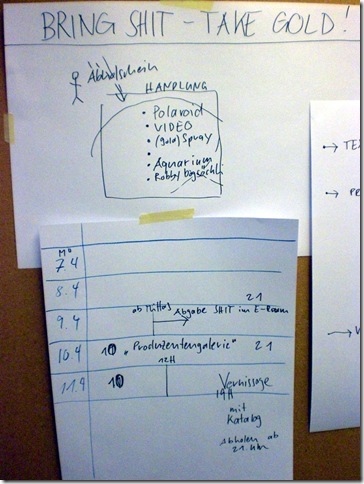 BRING SHIT - TAKE GOLD!
Abholschein
HANDLUNG
• Polaroid
• VIDEO
• (Gold) Spray
•
• Aquarium
• Robby
MO
7.4
8.4
ab Mittag Abgabe SHIT im E-Raum 21
9.4
10.4 10 "Produzentengalerie" 21
12H
11.4 10 Vernissage
19H
mit
Katalog
Abholen ab
21 Uhr
→ TE
→ PR